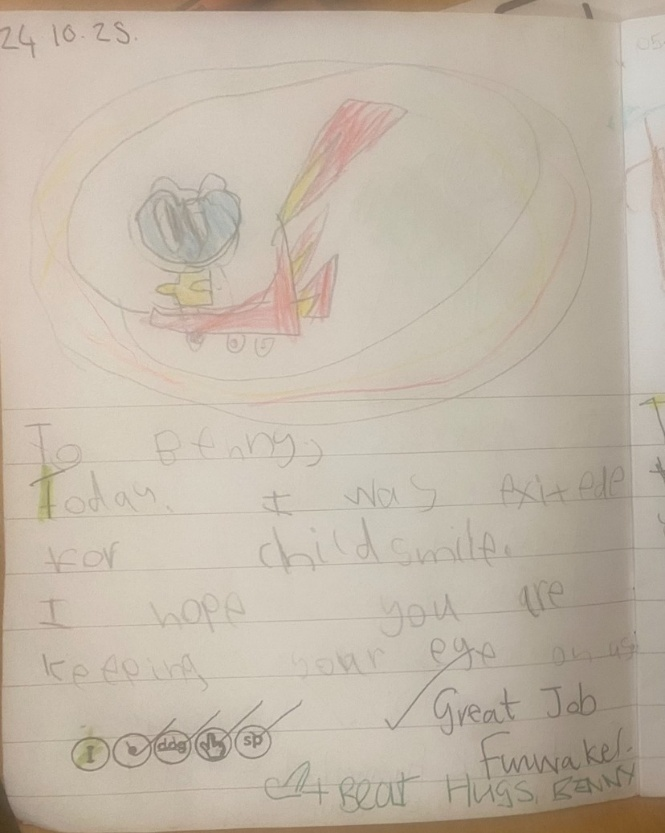 24.10.25.
To Benny,
Today. I was exitede
for childsmile.
I hope you are
keeping your eye on us
I ddg sp
Great Job
+ Bear Hugs, BENNY